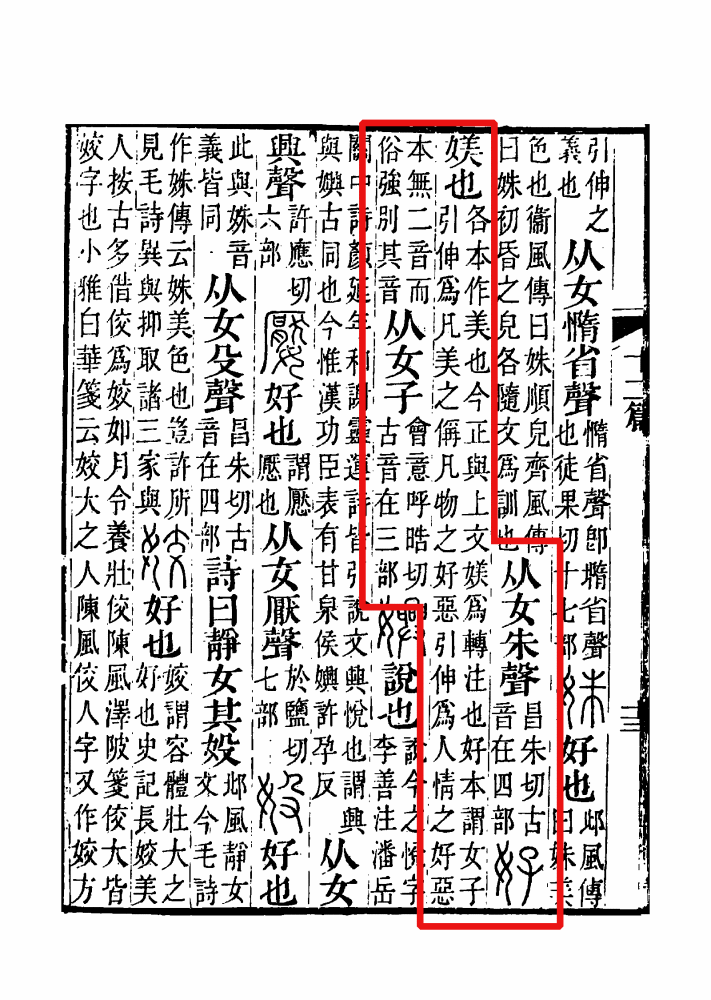 引伸之
義也
从女憜省聲
憜省聲卽墮省聲
也徒果切十七部
姝好也
邶風傳
曰姝美
色也衞風傳曰姝順皃齊風傳
曰姝初昏之皃各隨文爲訓也
从女朱聲
昌朱切古
音在四部
好
媄也
各本作美也今正與上文媄爲轉注也好本謂女子
引伸爲凡美之偁凡物之好惡引伸爲人情之好惡
本無二音而
俗強別其音
从女子
會意呼晧切
古音在三部
嬹說也
說今之悅字
李善注潘岳
關中詩顏延年和謝靈運詩皆引說文興悅也謂興
與嬹古同也今惟漢功臣表有甘泉侯嬹許孕反
从女
興聲
許應切
六部
嬮好也
謂嬮
嬮也
从女厭聲
於鹽切
七部
㚵好也
此與姝音
義皆同
从女殳聲
昌朱切古
音在四部
詩曰靜女其㚵
邶風靜女
文今毛詩
作姝傳云姝美色也豈許所
見毛詩異與抑取諸三家與
姣好也
姣謂容體壯大之
好也史記長姣美
人按古多借佼爲姣如月令養壯佼陳風澤陂箋佼大皆
姣字也小雅白華箋云姣大之人陳風佼人字又作姣方